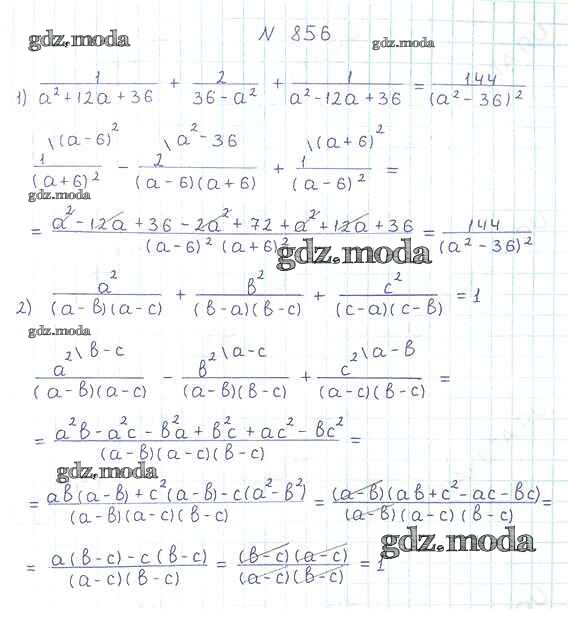 gdz.moda
№ 856
gdz.moda
1) 1/(a² + 12a + 36) + 2/(36 - a²) + 1/(a² - 12a + 36) = 144/(a² - 36)²
1\(a-6)²/(a+6)² - 2\a² - 36/(a-6)(a+6) + 1\(a+6)²/(a-6)² =
gdz.moda
= (a² - 12a + 36 - 2a² + 72 + a² + 12a + 36)/((a-6)² (a+6)²) = 144/(a² - 36)²
gdz.moda
2) a²/((a-в)(a-c)) + в²/((в-a)(в-c)) + c²/((c-a)(c-в)) = 1
gdz.moda
a²\в-c/((a-в)(a-c)) - в²\a-c/((a-в)(в-c)) + c²\a-в/((a-c)(в-c)) =
= (a²в - a²c - в²a + в²c + ac² - вc²)/((a-в)(a-c)(в-c)) =
gdz.moda
= (aв(a-в) + c²(a-в) - c(a²-в²))/((a-в)(a-c)(в-c)) = (a-в)(aв + c² - ac - вc)/((a-в)(a-c)(в-c)) =
gdz.moda
= (a(в-c) - c(в-c))/((a-c)(в-c)) = (в-c)(a-c)/((a-c)(в-c)) = 1